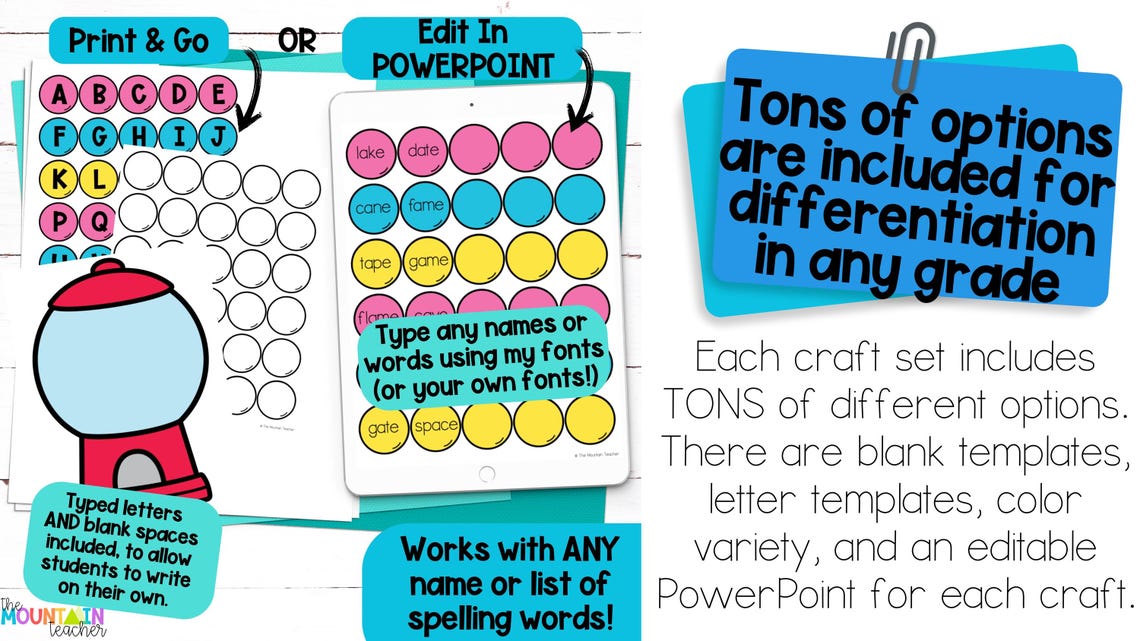 Print & Go
OR
Edit In
POWERPOINT
A B C D E
F G H I J
K L
P Q
lake date
cane fame
tape game
Type any names or
words using my fonts
(or your own fonts!)
gate space
© The Mountain Teacher
© The Mountain Teacher
Typed letters
AND blank spaces
included, to allow
students to write
on their own.
Works with ANY
name or list of
spelling words!
the
MOUNTAIN
teacher
Tons of options
are included for
differentiation
in any grade
Each craft set includes
TONS of different options.
There are blank templates,
letter templates, color
variety, and an editable
PowerPoint for each craft.